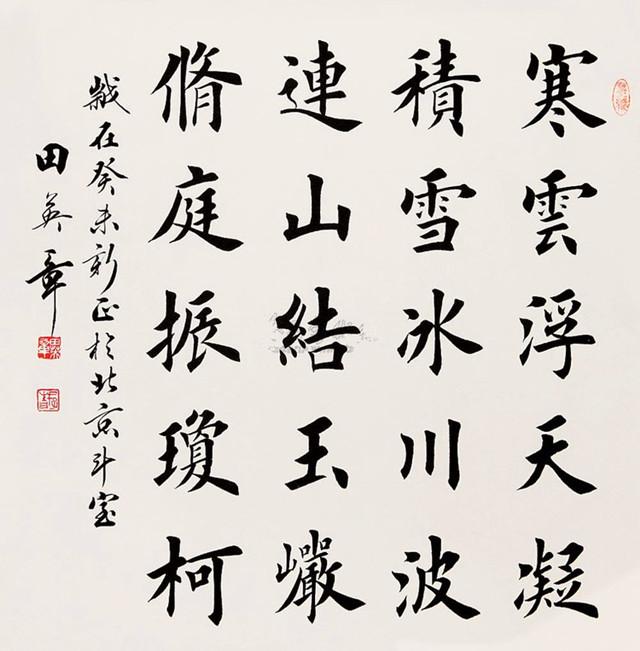 寒雲浮天凝
積雪冰川波
連山結玉巖
脩庭振瓊柯
歲在癸未新正於北京斗室
田英章